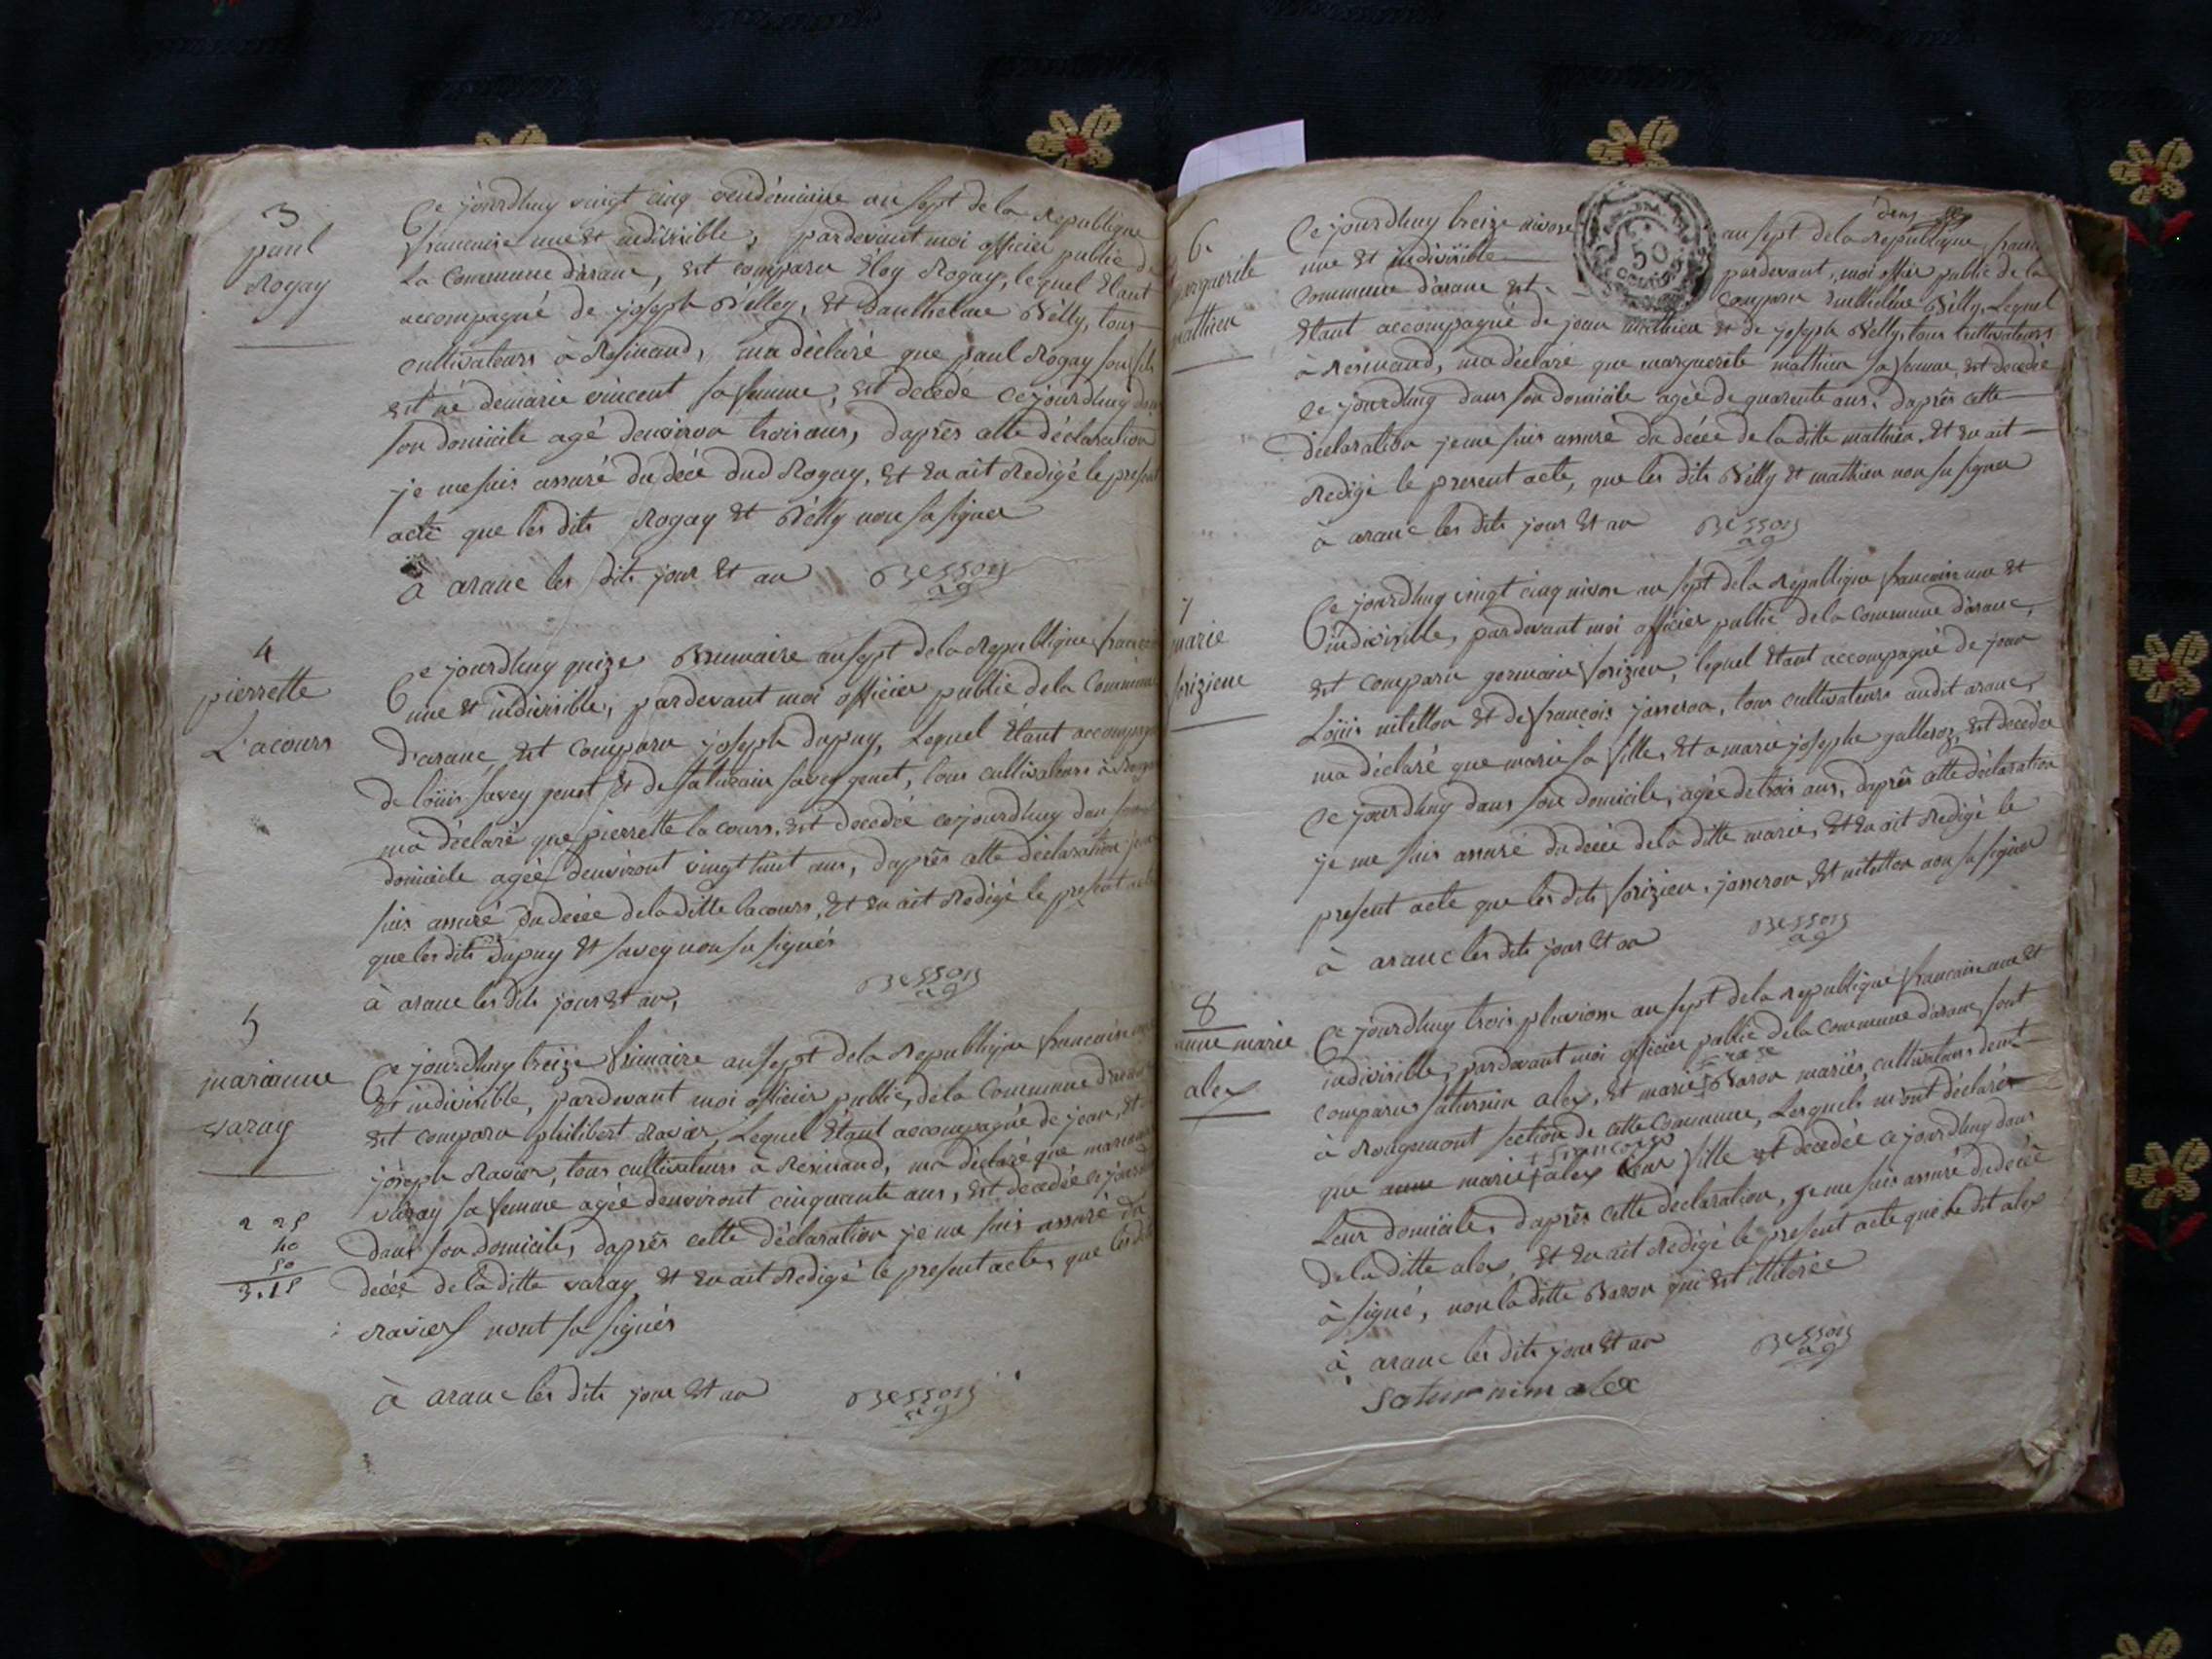 3
paul
Rogay
Ce jourdhuy vingt cinq vendémiaire an sept de la Republique
francaise une et indivisible, pardevant moi officier public de
la Commune d'aranc, est comparu Eloy Rogay, lequel Etant
accompagné de joseph Billey, et d'anthelme Billy, tous
cultivateurs à Resinand, ma déclaré que paul Rogay son fils
est né de marie vincent sa femme, est décédé ce jourdhuy dans
son domicile agé denviron trois ans, daprès cette déclaration
je me suis assuré du décé dud Rogay, et en ait Redigé le present
acte que les dits Rogay et Billy non su signer
à aranc les dits jour et an Besson
ag
4
pierrette
L'acours
Ce jourdhuy quize Brumaire an sept de la Republique
une et indivisible, pardevant moi officier public de la Commune
d'aranc, est comparu joseph dupuy, Lequel Etant
de loüis savey genet et de saturnin savey genet, tous cultivateurs à
ma déclaré que pierrette lacours, est décédée cejourdhuy dan
domicile agée denviront vingt huit ans, daprès cette déclaration
suis assuré du décée de la ditte lacours, et en ait Redigé le present acte
que les dits Dupuy et savey non su signés
à aranc les dits jour et an, Besson
ag
5
marianne
varay
Ce jourdhuy treize frimaire an sept de la Republique francaise
et indivisible, pardevant moi officier public, de la Commune d'aranc
est comparu philibert Ravier, Lequel Etant accompagné de jean, et
joseph Ravier, tous cultivateurs à Resinand, ma déclaré que
varay sa femme agée denviront cinquante ans, est décédée
dans son domicile, daprès cette déclaration je me suis assuré du
décés de la ditte varay, et en ait Redigé le present acte, que les
Ravier nont su signés
à aranc les dits jour et an Besson
ag
2 25
40
50
3.15
6
mathieu
50
Ce jourdhuy treize nivose an sept de la Republique
une et indivisible pardevant, moi officier public de la
Commune d'aranc est comparu Billy, Lequel
Etant accompagné de jean mathieu et de joseph Billy, tous cultivateurs
à Resinand, ma déclaré que marguerite mathieu sa femme, est décédée
ce jourdhuy dans son domicile agée de quarente ans, daprès cette
déclaration je me suis assuré du décée de la ditte mathieu, et en ait
Redigé le present acte, que les dits Billy et mathieu non su signer
à aranc les dits jour et an Besson
ag
7
marie
Ce jourdhuy vingt cinq nivose an sept de la Republique francaise une et
indivisible, pardevant moi officier public de la Commune d'aranc,
est comparu germain forizien, lequel Etant accompagné de jean
Loüis mitellon et de francois jasseron, tous cultivateurs audit aranc,
ma déclaré que marie sa fille, et a marie josephe est décédée
ce jourdhuy dans son domicile, agée de trois ans, daprès cette déclaration
je me suis assuré du décée de la ditte marie, et en ait Redigé le
present acte que les dits forizien, jasseron, et mitellon non su signer
à aranc les dits jour et an Besson
ag
8
anne marie
alex
Ce jourdhuy trois pluviose an sept de la republique francaise une et
indivisible, pardevant moi officier public de la Commune d'aranc, sont
comparus saturnin alex, et marie Baron mariés, cultivateurs demt
à Rougemont section de cette Commune, Lesquels m'ont déclarés
que anne marie alex leur fille est décédée ce jourdhuy dans
Leur domicile, daprès cette déclaration, je me suis assuré du décée
de la ditte alex, et en ait Redigé le present acte que le dit alex
à signé, non la ditte Baron qui est illiterée
à aranc les dits jour et an Besson
ag
saturnin alex